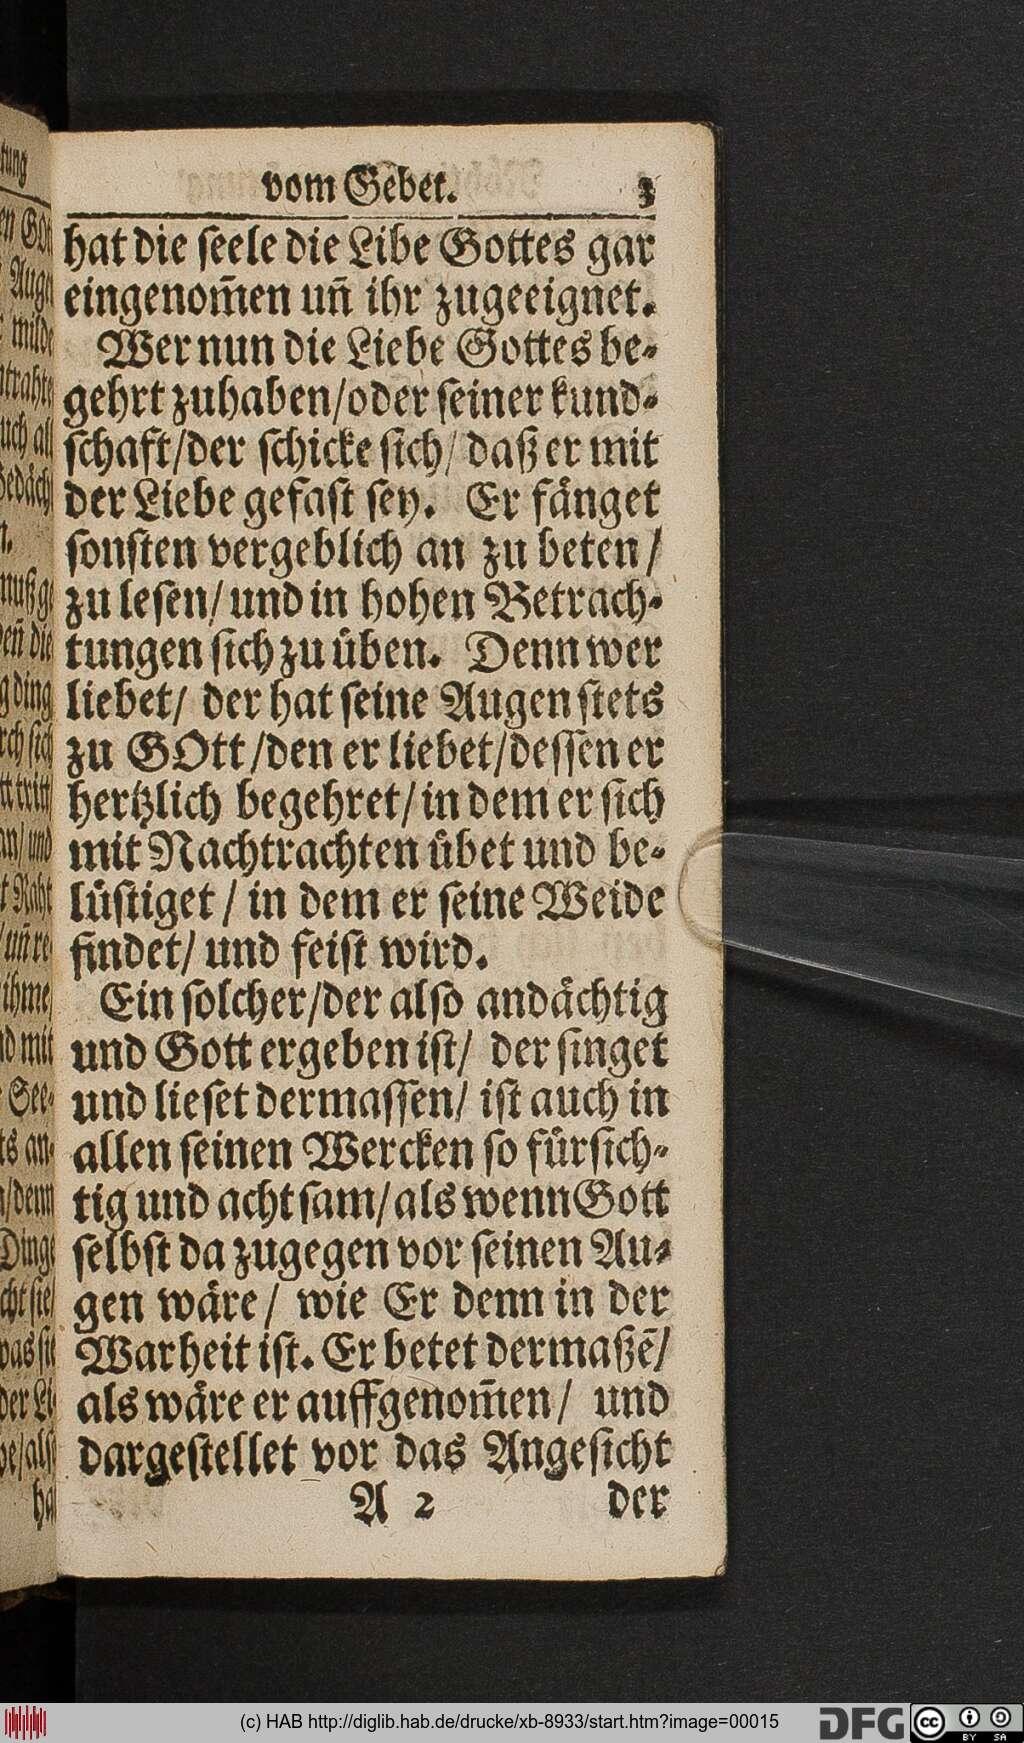 vom Gebet. 3
hat die seele die Libe Gottes gar
eingenom̃en uñ ihr zugeeignet.
Wer nun die Liebe Gottes be-
gehrt zuhaben/oder seiner kund-
schaft/der schicke sich/ daß er mit
der Liebe gefast sey. Er fånget
sonsten vergeblich an zu beten/
zu lesen/ und in hohen Betrach-
tungen sich zu üben. Denn wer
liebet/ der hat seine Augen stets
zu GOtt/den er liebet/dessen er
hertzlich begehret/ in dem er sich
mit Nachtrachten übet und be-
lüstiget/ in dem er seine Weide
findet/ und feist wird.
Ein solcher/der also andåchtig
und Gott ergeben ist/ der singet
und lieset dermassen/ ist auch in
allen seinen Wercken so fürsich-
tig und achtsam/als wenn Gott
selbst da zugegen vor seinen Au-
gen wåre/ wie Er denn in der
Warheit ist. Er betet dermaßē/
als wåre er auffgenom̃en/ und
dargestellet vor das Angesicht
A 2 der
(c) HAB http://diglib.hab.de/drucke/xb-8933/start.htm?image=00015
DFG
cc BY SA